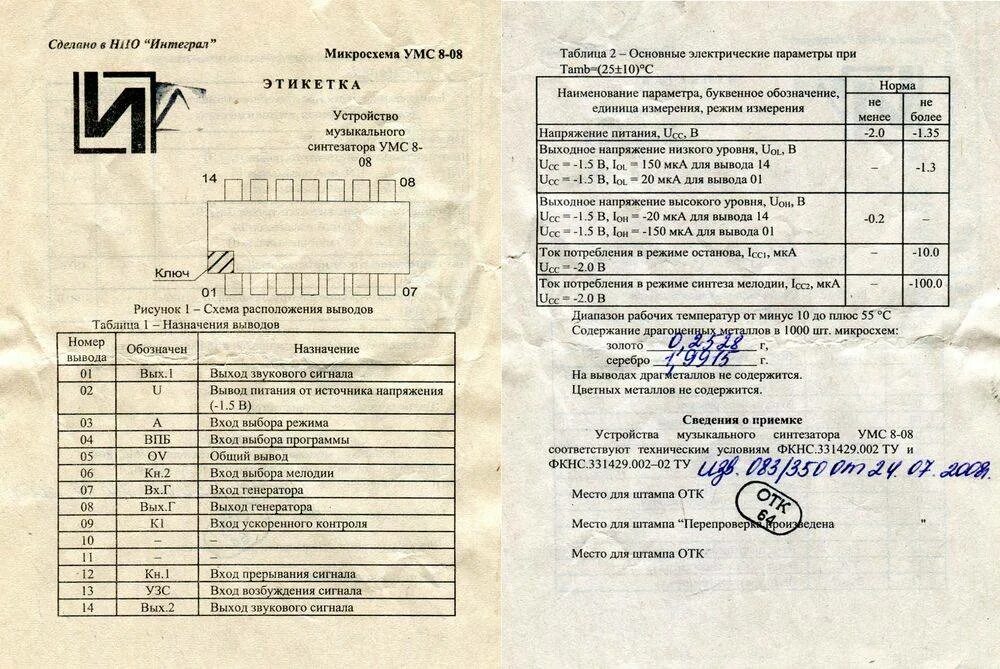 Сделано в НПО “Интеграл”
Микросхема УМС 8-08
ЭТИКЕТКА
Устройство
музыкального
синтезатора УМС 8-
08
14 08
Ключ
01 07
Рисунок 1 – Схема расположения выводов
Таблица 1 – Назначения выводов
Номер вывода Обозначен Назначение
01 Вых.1 Выход звукового сигнала
02 U Вывод питания от источника напряжения
(-1.5 В)
03 А Вход выбора режима
04 ВПБ Вход выбора программы
05 OV Общий вывод
06 Кн.2 Вход выбора мелодии
07 Вх.Г Вход генератора
08 Вых.Г Выход генератора
09 К1 Вход ускоренного контроля
10 – –
11 – –
12 Кн.1 Вход прерывания сигнала
13 УЗС Вход возбуждения сигнала
14 Вых.2 Выход звукового сигнала
Таблица 2 – Основные электрические параметры при
Tamb=(25±10)°C
Наименование параметра, буквенное обозначение,
единица измерения, режим измерения
Норма
не менее не более
Напряжение питания, UCC, В -2.0 -1.35
Выходное напряжение низкого уровня, UOL, В
UCC = -1.5 В, IOL = 150 мкА для вывода 14 – -1.3
UCC = -1.5 В, IOL = 20 мкА для вывода 01
Выходное напряжение высокого уровня, UOH, В
UCC = -1.5 В, IOH = -20 мкА для вывода 14 -0.2 –
UCC = -1.5 В, IOH = -150 мкА для вывода 01
Ток потребления в режиме останова, ICC1, мкА – -10.0
UCC = -2.0 В
Ток потребления в режиме синтеза мелодии, ICC2, мкА – -100.0
UCC = -2.0 В
Диапазон рабочих температур от минус 10 до плюс 55 °C
Содержание драгоценных металлов в 1000 шт. микросхем:
золото 0,2528 г,
серебро 1,9915 г.
На выводах драгметаллов не содержится.
Цветных металлов не содержится.
Сведения о приемке
Устройства музыкального синтезатора УМС 8-08
соответствуют техническим условиям ФКНС.331429.002 ТУ и
ФКНС.331429.002–02 ТУ изв. 083/350 от 24.07.2008г.
Место для штампа ОТК
ОТК
64
Место для штампа “Перепроверка произведена "
Место для штампа ОТК